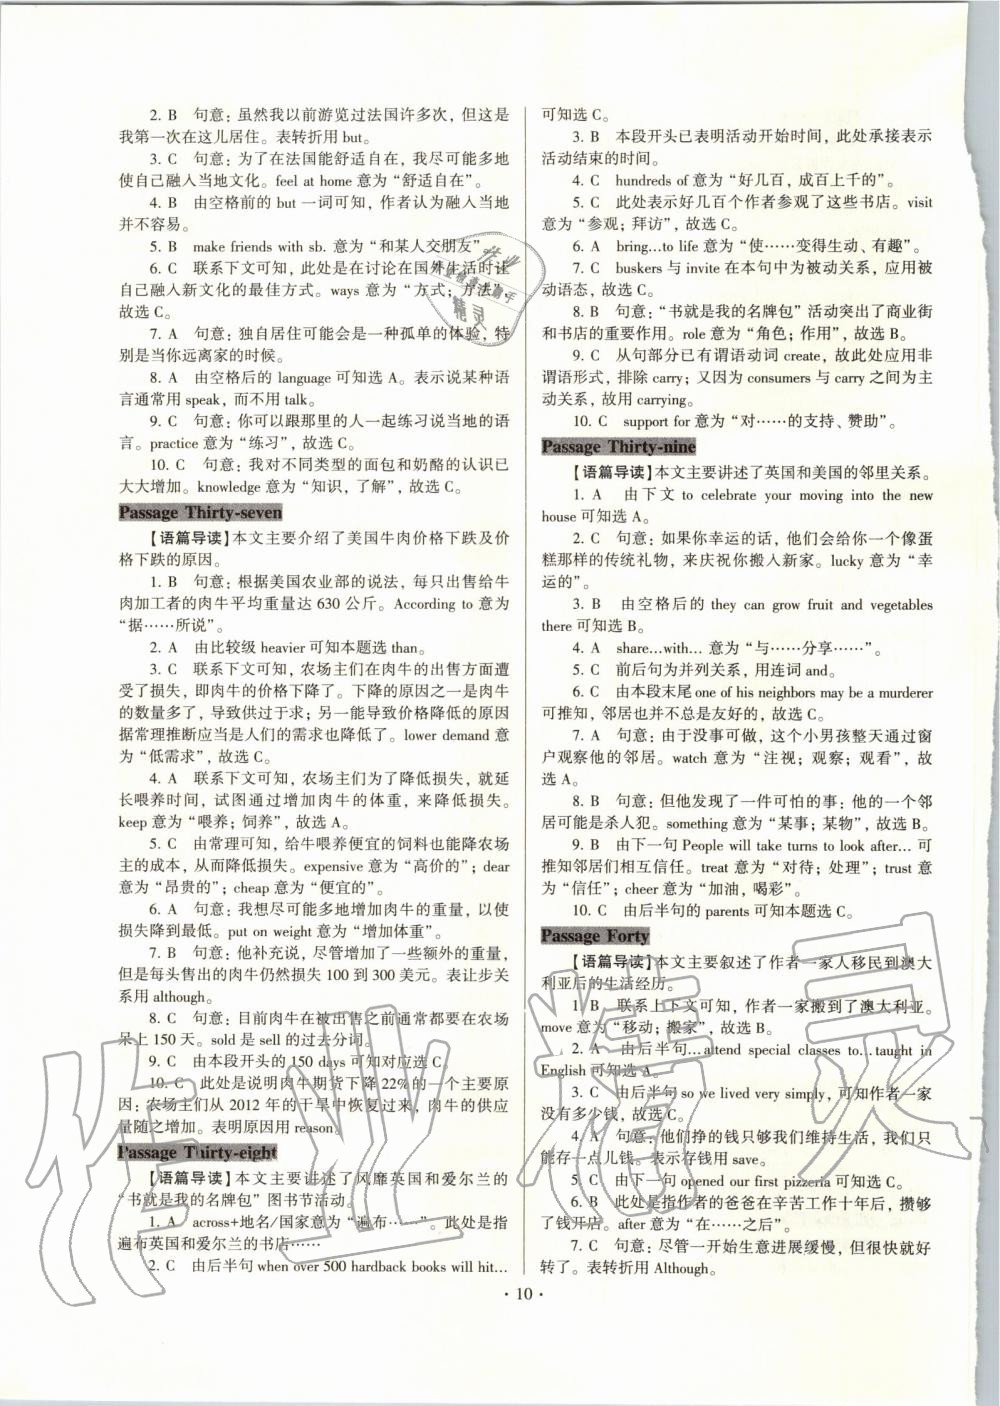 2. B　句意：虽然我以前游览过法国许多次，但这是
我第一次在这儿居住。表转折用 but。
3. C　句意：为了在法国能舒适自在，我尽可能多地
使自己融入当地文化。feel at home 意为“舒适自在”。
4. B　由空格前的 but 一词可知，作者认为融入当地
并不容易。
5. B　make friends with sb. 意为“和某人交朋友”
6. C　联系下文可知，此处是在讨论在国外生活时让
自己融入新文化的最佳方式。ways 意为“方式；方法”，
故选 C。
7. A　句意：独自居住可能会是一种孤单的体验，特
别是当你远离家的时候。
8. A　由空格后的 language 可知选 A。表示说某种语
言通常用 speak，而不用 talk。
9. C　句意：你可以跟那里的人一起练习说当地的语
言。practice 意为“练习”，故选 C。
10. C　句意：我对不同类型的面包和奶酪的认识已
大大增加。knowledge 意为“知识，了解”，故选 C。
Passage Thirty-seven
【语篇导读】本文主要介绍了美国牛肉价格下跌及价
格下跌的原因。
1. B　句意：根据美国农业部的说法，每只出售给牛
肉加工者的肉牛平均重量达 630 公斤。According to 意为
“据……所说”。
2. A　由比较级 heavier 可知本题选 than。
3. C　联系下文可知，农场主们在肉牛的出售方面遭
受了损失，即肉牛的价格下降了。下降的原因之一是肉牛
的数量多了，导致供过于求；另一能导致价格降低的原因
据常理推断应当是人们的需求也降低了。lower demand 意
为“低需求”，故选 C。
4. A　联系下文可知，农场主们为了降低损失，就延
长喂养时间，试图通过增加肉牛的体重，来降低损失。
keep 意为“喂养；饲养”，故选 A。
5. C　由常理可知，给牛喂养便宜的饲料也能降农场
主的成本，从而降低损失。expensive 意为“高价的”；dear
意为“昂贵的”；cheap 意为“便宜的”。
6. A　句意：我想尽可能多地增加肉牛的重量，以使
损失降到最低。put on weight 意为“增加体重”。
7. B　句意：他补充说，尽管增加了一些额外的重量，
但是每头售出的肉牛仍然损失 100 到 300 美元。表让步关
系用 although。
8. C　句意：目前肉牛在被出售之前通常都要在农场
呆上 150 天。sold 是 sell 的过去分词。
9. C　由本段开头的 150 days 可知对应选 C。
10. C　此处是说明肉牛期货下降 22%的一个主要原
因：农场主们从 2012 年的干旱中恢复过来，肉牛的供应
量随之增加。表明原因用 reason。
Passage Thirty-eight
【语篇导读】本文主要讲述了风靡英国和爱尔兰的
“书就是我的名牌包”图书节活动。
1. A　across+地名/国家意为“遍布……”。此处是指
遍布英国和爱尔兰的书店……
2. C　由后半句 when over 500 hardback books will hit...
可知选 C。
3. B　本段开头已表明活动开始时间，此处承接表示
活动结束的时间。
4. C　hundreds of 意为“好几百，成百上千的”。
5. C　此处表示好几百个作者参观了这些书店。visit
意为“参观；拜访”，故选 C。
6. A　bring...to life 意为“使……变得生动、有趣”。
7. C　buskers 与 invite 在本句中为被动关系，应用被
动语态，故选 C。
8. B　句意：“书就是我的名牌包”活动突出了商业街
和书店的重要作用。role 意为“角色；作用”，故选 B。
9. C　从句部分已有谓语动词 create，故此处应用非
谓语形式，排除 carry；又因为 consumers 与 carry 之间为主
动关系，故用 carrying。
10. C　support for 意为“对……的支持、赞助”。
Passage Thirty-nine
【语篇导读】本文主要讲述了英国和美国的邻里关系。
1. A　由下文 to celebrate your moving into the new
house 可知选 A。
2. C　句意：如果你幸运的话，他们会给你一个像蛋
糕那样的传统礼物，来庆祝你搬入新家。lucky 意为“幸
运的”。
3. B　由空格后的 they can grow fruit and vegetables
there 可知选 B。
4. A　share...with... 意为“与……分享……”。
5. C　前后句为并列关系，用连词 and。
6. C　由本段末尾 one of his neighbors may be a murderer
可推知，邻居也并不总是友好的，故选 C。
7. A　句意：由于没事可做，这个小男孩整天通过窗
户观察他的邻居。watch 意为“注视；观察；观看”，故
选 A。
8. B　句意：但他发现了一件可怕的事：他的一个邻
居可能是杀人犯。something 意为“某事；某物”，故选 B。
9. B　由下一句 People will take turns to look after... 可
推知邻居们相互信任。treat 意为“对待；处理”；trust 意
为“信任”；cheer 意为“加油，喝彩”。
10. C　由后半句的 parents 可知本题选 C。
Passage Forty
【语篇导读】本文主要叙述了作者一家人移民到澳大
利亚后的生活经历。
1. B　联系上下文可知，作者一家搬到了澳大利亚。
move 意为“移动；搬家”，故选 B。
2. A　由后半句...attend special classes to...taught in
English 可知选 A。
3. C　由后半句 so we lived very simply，可知作者一家
没有多少钱，故选 C。
4. A　句意：他们挣的钱只够我们维持生活，我们只
能存一点儿钱。表示存钱用 save。
5. C　由下一句 opened our first pizzeria 可知选 C。
6. B　此处是指作者的爸爸在辛苦工作十年后，攒够
了钱开店。after 意为“在……之后”。
7. C　句意：尽管一开始生意进展缓慢，但很快就好
转了。表转折用 Although。
· 10 ·
作业精灵